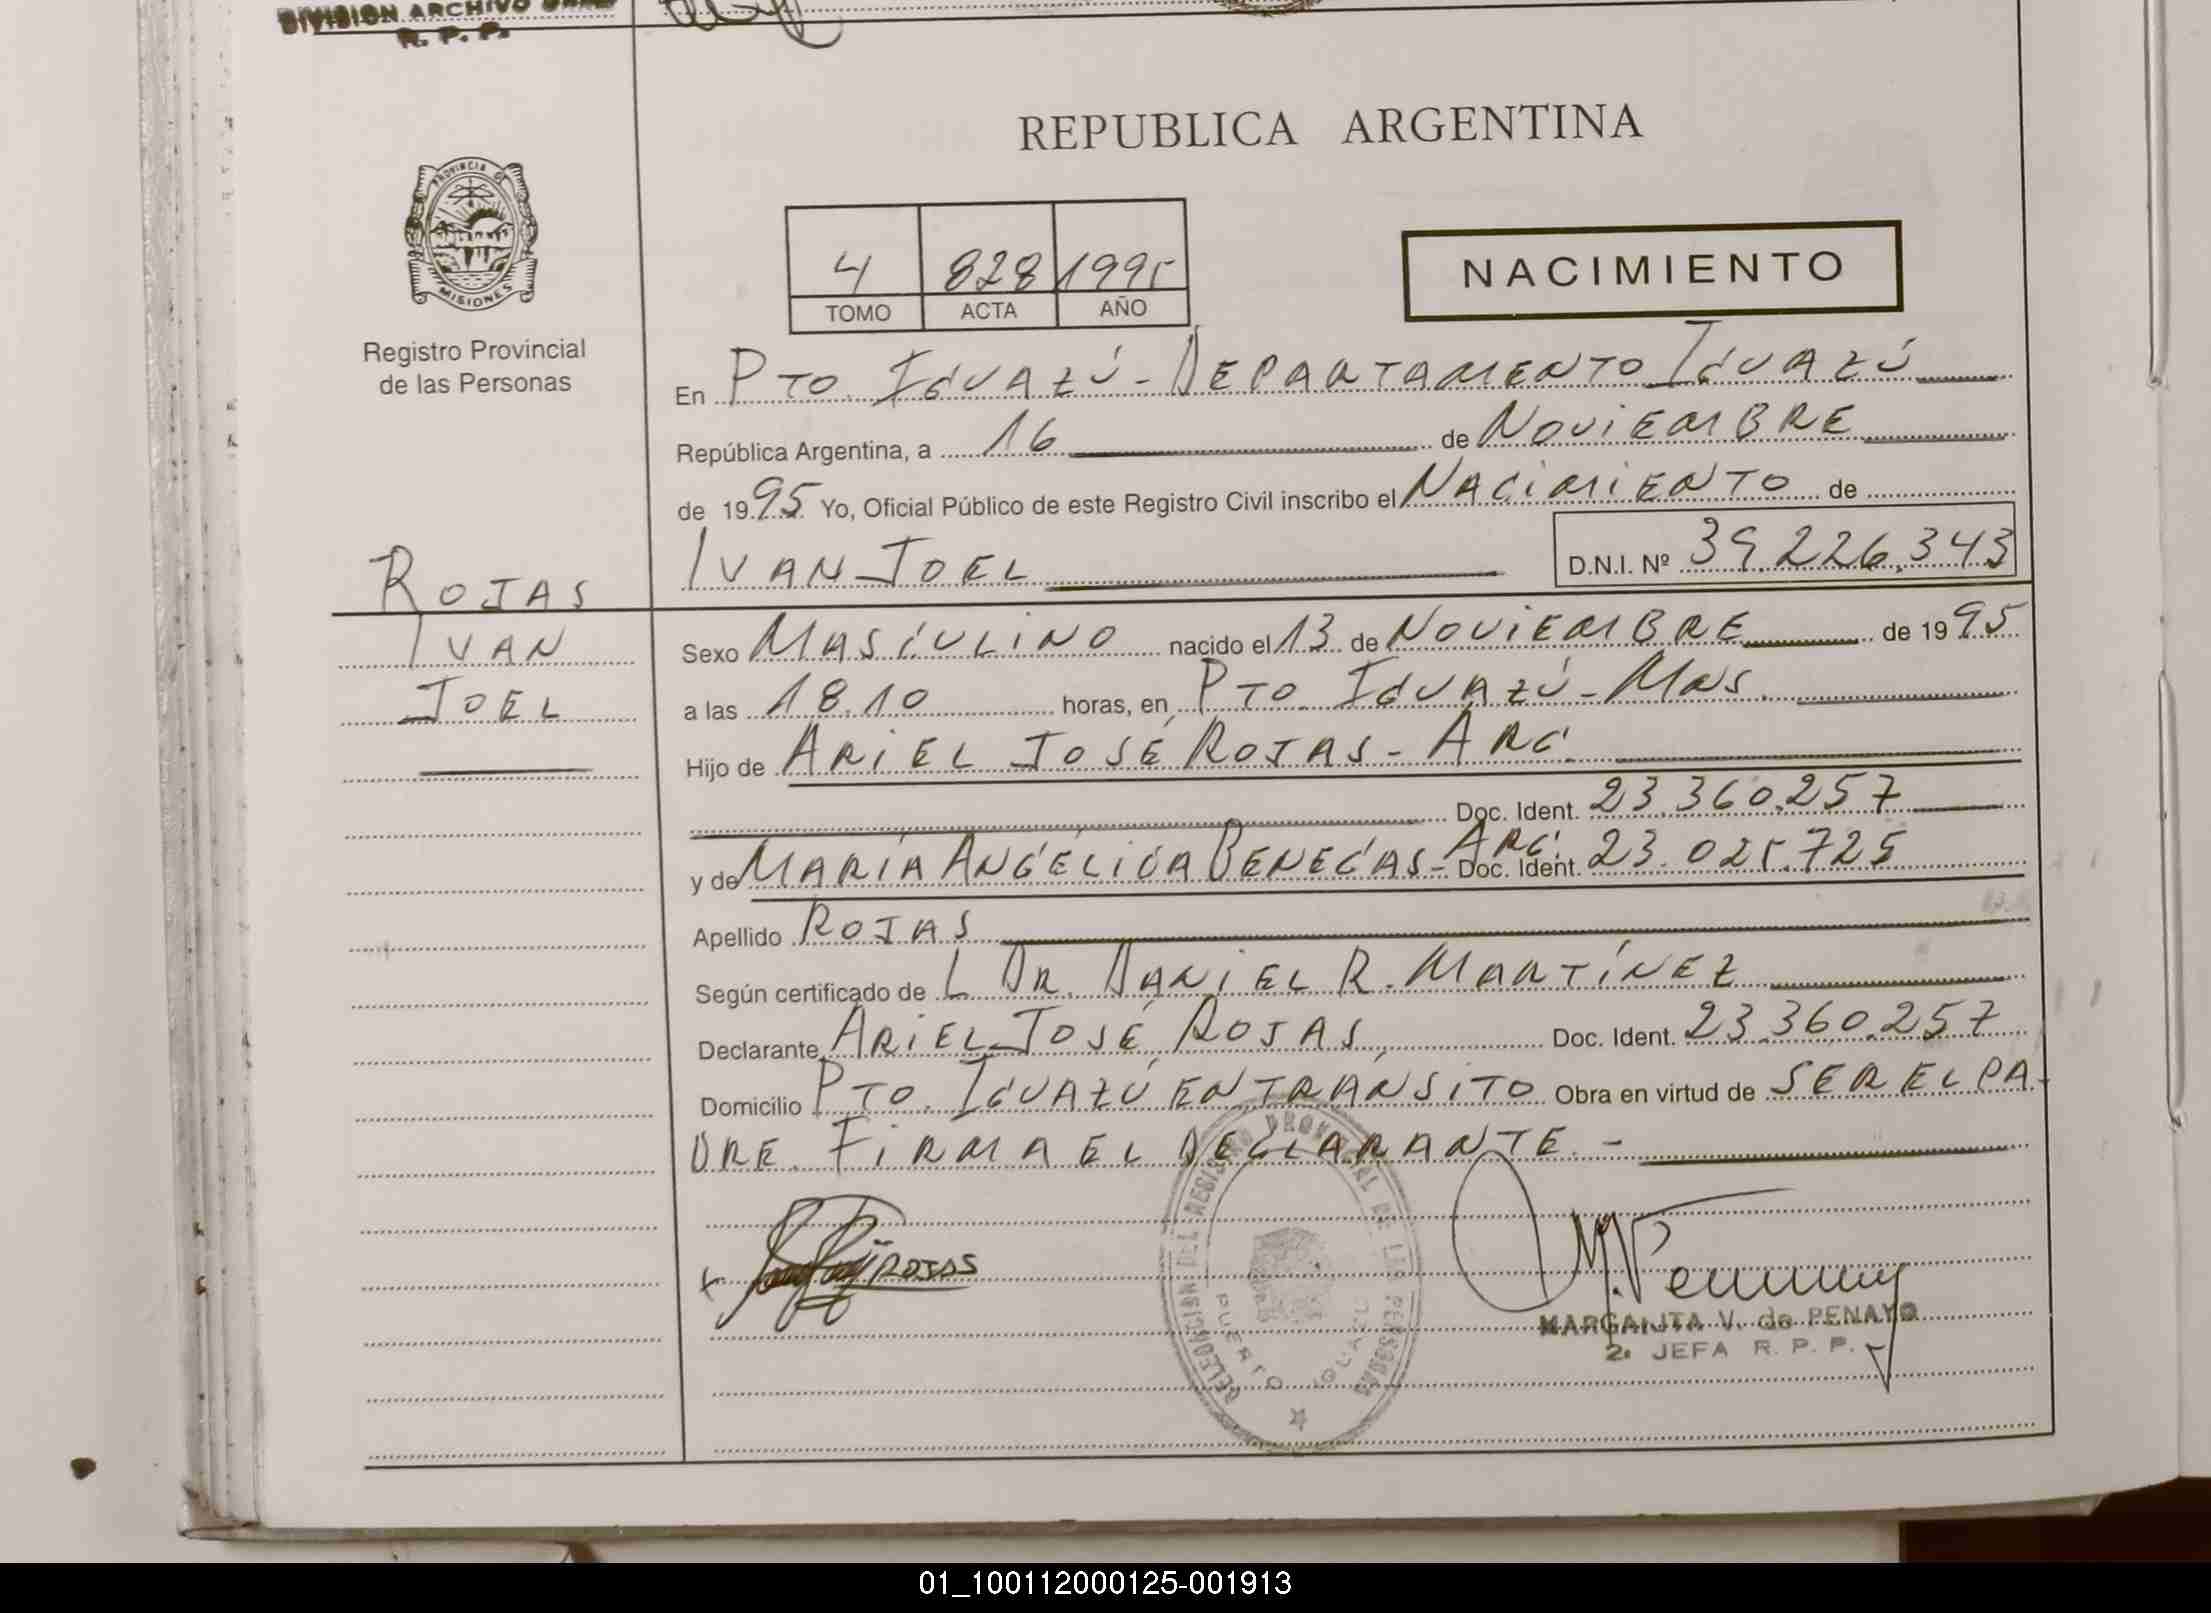 DIVISION ARCHIVO
R. P. P.
REPUBLICA ARGENTINA
PROVINCIA DE
MISIONES
Registro Provincial
de las Personas
4 828 1995
TOMO ACTA AÑO
NACIMIENTO
En PTO. IGUAZÚ - DEPARTAMENTO IGUAZÚ
República Argentina, a 16 de NOVIEMBRE
de 1995 Yo, Oficial Público de este Registro Civil inscribo el NACIMIENTO de
IVAN JOEL D.N.I. Nº 39.226.343
ROJAS
IVAN
JOEL
Sexo MASCULINO nacido el 13 de NOVIEMBRE de 1995
a las 18.10 horas, en PTO. IGUAZÚ - MNS.
Hijo de ARIEL JOSÉ ROJAS - ARG.
Doc. Ident. 23.360.257
y de MARÍA ANGÉLICA BENEGAS - ARG. Doc. Ident. 23.025.725
Apellido ROJAS
Según certificado de L DR. DANIEL R. MARTÍNEZ
Declarante ARIEL JOSÉ ROJAS Doc. Ident. 23.360.257
Domicilio PTO. IGUAZÚ EN TRÁNSITO Obra en virtud de SER EL PA-
DRE. FIRMA EL DECLARANTE. -
ROJAS
DELEGACION DEL REGISTRO PROVINCIAL DE LAS PERSONAS
PUERTO IGUAZU
MARGARITA V. de PENAYO
2ª JEFA R. P. P.
01_100112000125-001913